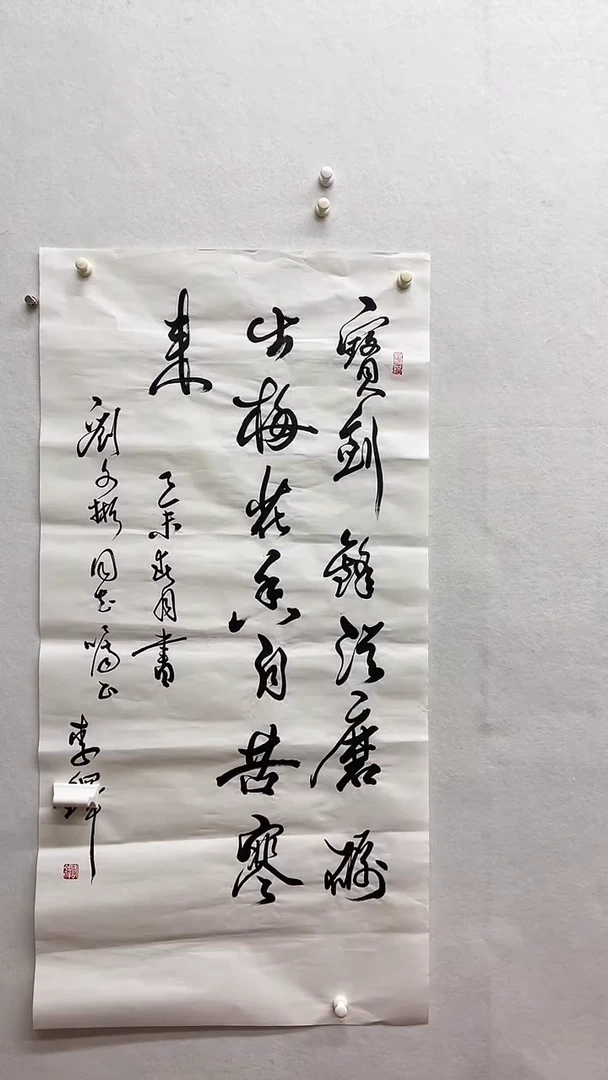 寶劍鋒從磨礪
出梅花香自苦寒
來
乙未春月書
劉文彬同志囑正
李